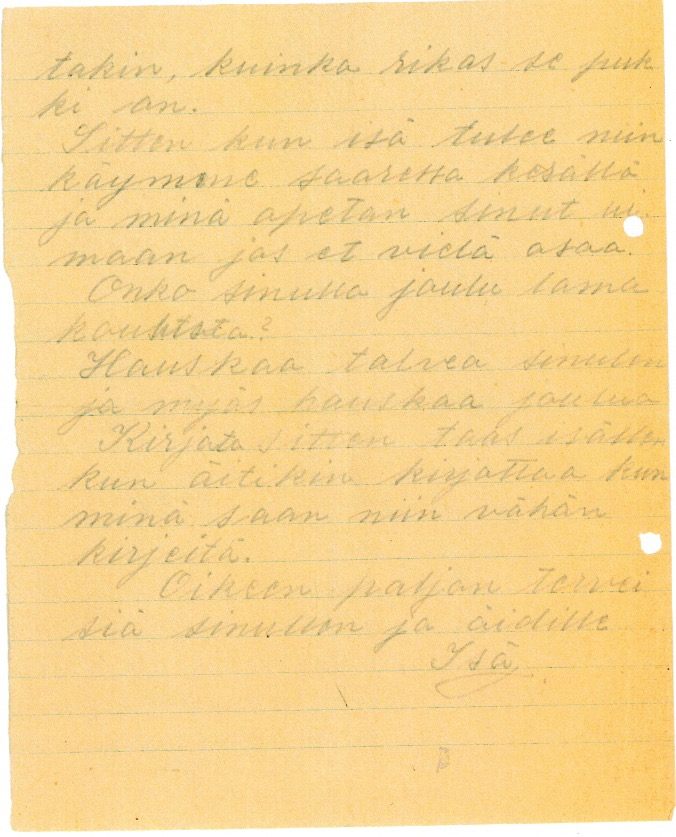 takin, kuinka rikas se puk
ki on.
Sitten kun isä tulee niin
käymme saaressa kesällä
ja minä opetan sinut ui
maan jos et vielä osaa.
Onko sinulla joulu loma
hauskaa
Hauskaa talvea sinullen
ja myös hauskaa joulua
Kirjota sitten taas isällen
kun äitikin kirjottaa kun
minä saan niin vähän
kirjeitä.
Oikeen paljon tervei
siä sinullen ja äidille
Isä